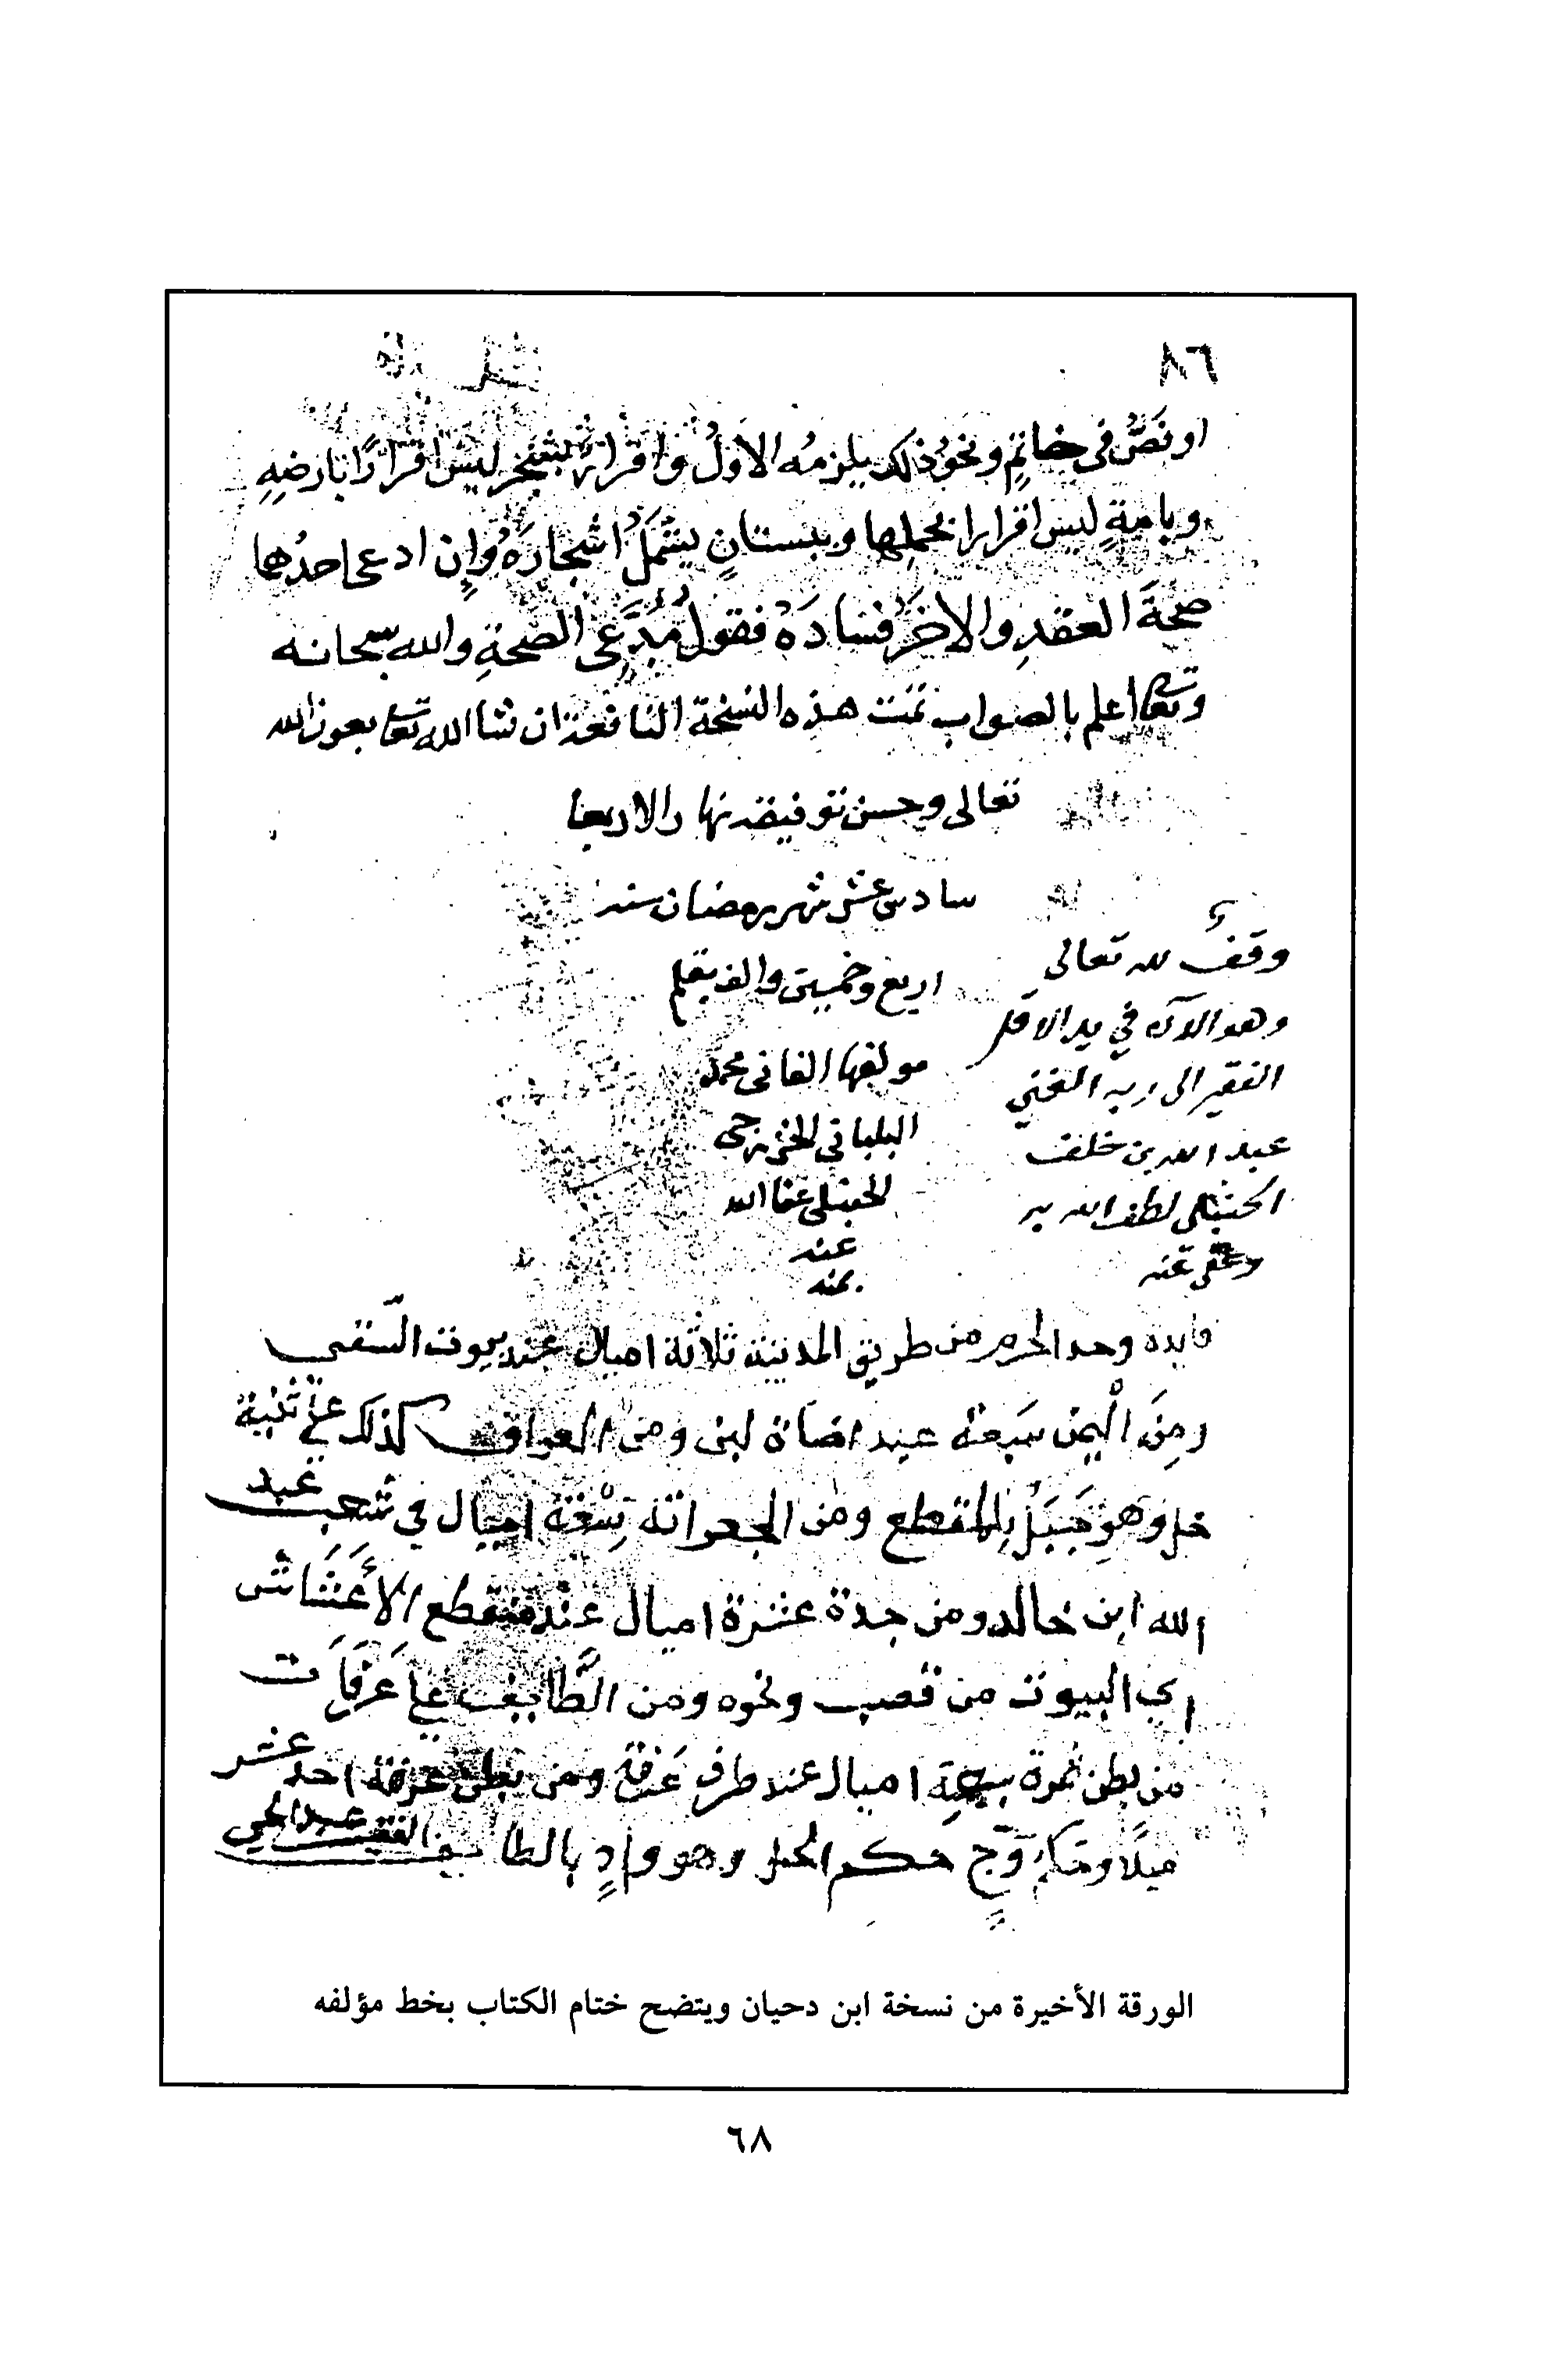 ٨٦
او نَصٌّ في خاتمٍ ونحوُ ذلك يلزمُه الاولُ واقرارُهُ بشجرٍ ليسَ اقرارًا بارضِهِ
وبامةٍ ليس اقرارا بحملِها وببستانٍ يشملُ اشجارَهُ وإن ادعى احدُهما
صحةَ العقدِ والاخرُ فسادَهُ فقولُ مُدَّعي الصحةِ والله سبحانه
وتعا اعلم بالصواب تمت هذه النسخة النافعة ان شا الله تعا بعون الله
تعالى وحسن توفيقه نهار الاربعا
سادس عشر شهر رمضان سنة
اربع وخمسين والف بقلم
مولفها الفاني محمد
البلباني الخزرجي
الحنبلي عفا الله
عنه
وقف لله تعالى
وهو الآن في يد الاقل
الفقير الى ربه الغني
عبد الله بن خلف
الحنبلي لطف الله به
وعفى عنه
فايدة وحد الحرم من طريق المدينة ثلاثة اميال عند بيوت السقيا
ومِنَ الْيمن سَبعة عند اضاة لبن ومن العراق كذلك على ثنية
خل وهو جَبَل بالمقطع ومن الجعرانة تِسْعَة اميال في شعب عبد
الله ابن خالد ومن جدة عشرة اميال عند منقطع الأعَشَاش
اي البيوت من قصب ونحوه ومن الطَّايف على عَرَفَات
من بطن نمرة سبعة اميال عند طرف عَرَفة ومن بطن عرفة احد عشر
ميلًا وحكم وَّجٍّ حكم الحل وهو وادٍ بالطايف الفقير عبد الحي
الورقة الأخيرة من نسخة ابن دحيان ويتضح ختام الكتاب بخط مؤلفه
٦٨